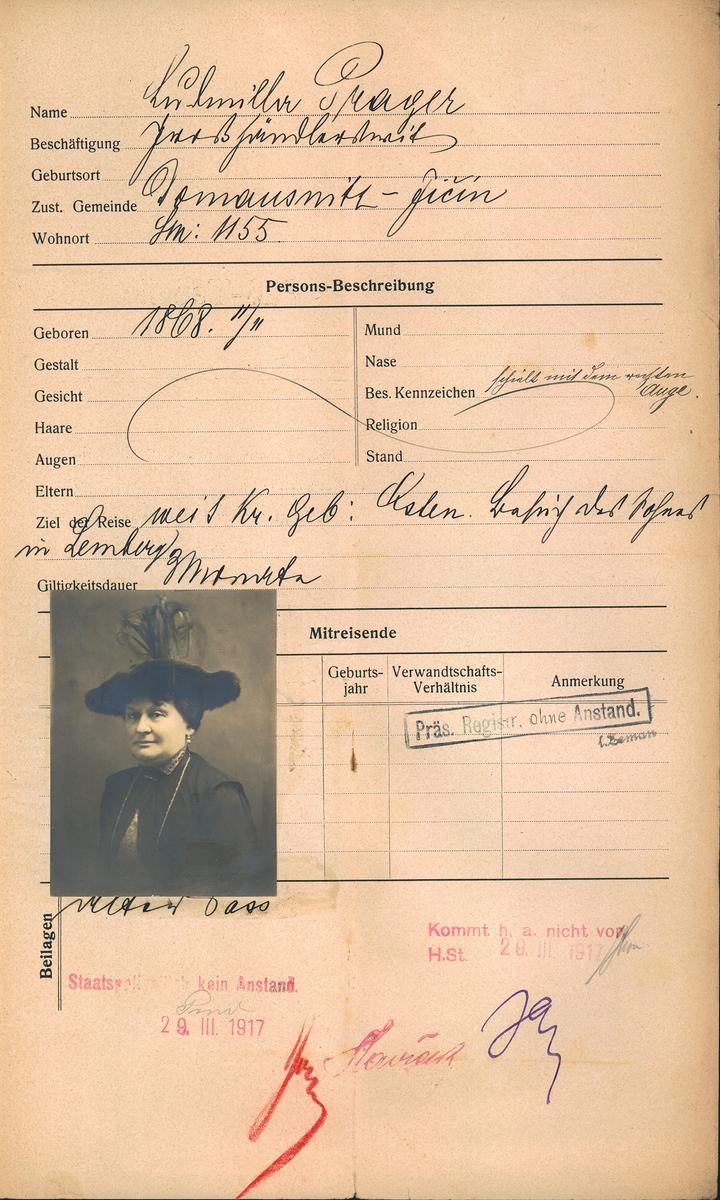 Name Ludmilla Prager
Beschäftigung Großhändlerswit
Geburtsort
Zust. Gemeinde Domausnitz - Jičín
Wohnort Sm: 1155
Persons-Beschreibung
Geboren 1868. 11/11
Mund
Gestalt
Nase
Gesicht
Bes. Kennzeichen schielt mit dem rechten
Auge.
Haare
Religion
Augen
Stand
Eltern
Ziel der Reise weit Kr. Geb: Osten. Besuch des Sohnes
in Lemberg
Giltigkeitsdauer 3 Monate
Mitreisende
Geburts-
jahr
Verwandtschafts-
Verhältnis
Anmerkung
Präs. Registr. ohne Anstand.
Beilagen
alter Pass
Kommt h. a. nicht vor
H.St. 29. III. 1917
Staatspolizeilich kein Anstand.
29. III. 1917